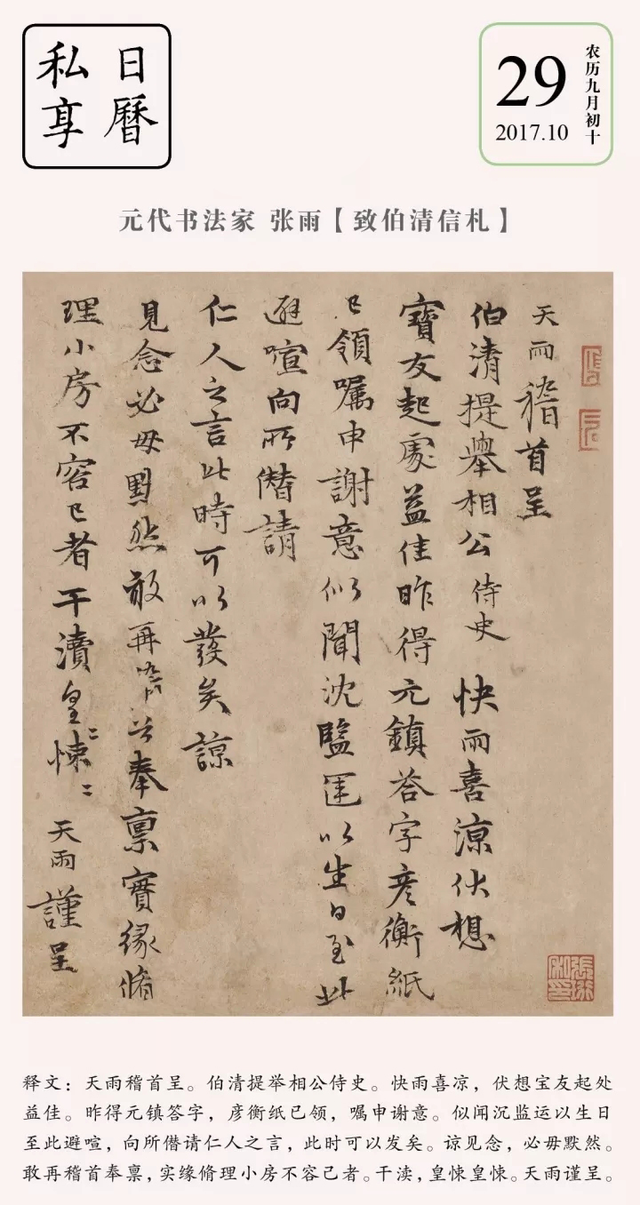 日曆
私享
29
2017.10
农历九月初十
元代书法家 张雨【致伯清信札】
天雨稽首呈
伯清提舉相公侍史 快雨喜涼伏想
寶友起處益佳昨得元鎮荅字彥衡紙
已領囑申謝意似聞沈監運以生日至此
避喧向所僭請
仁人之言此時可以發矣諒
見念必毋默然敢再稽首奉稟實緣脩
理小房不容已者干瀆皇〻悚〻天雨謹呈
释文：天雨稽首呈。伯清提举相公侍史。快雨喜凉，伏想宝友起处
益佳。昨得元镇答字，彦衡纸已领，嘱申谢意。似闻沉监运以生日
至此避喧，向所僭请仁人之言，此时可以发矣。谅见念，必毋默然。
敢再稽首奉禀，实缘脩理小房不容己者。干渎，皇悚皇悚。天雨谨呈。